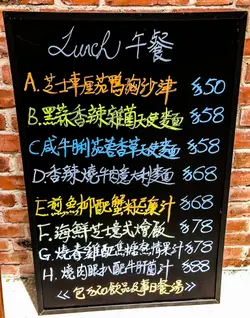 Lunch 午餐
A. 芝士車厘茄鴨胸沙津 $50
B. 黑蒜香辣雜菌天使麵 $58
C. 咸牛脷炭香草天使麵 $58
D. 香辣燒牛肉意大利麵 $58
E. 煎魚柳配蟹粉汁 $68
F. 海鮮芝士焗燴飯 $78
G. 燒香雞配焦糖熱情果汁 $78
H. 燒肉眼扒配牛肝菌汁 $88
包 飲品及事日餐湯